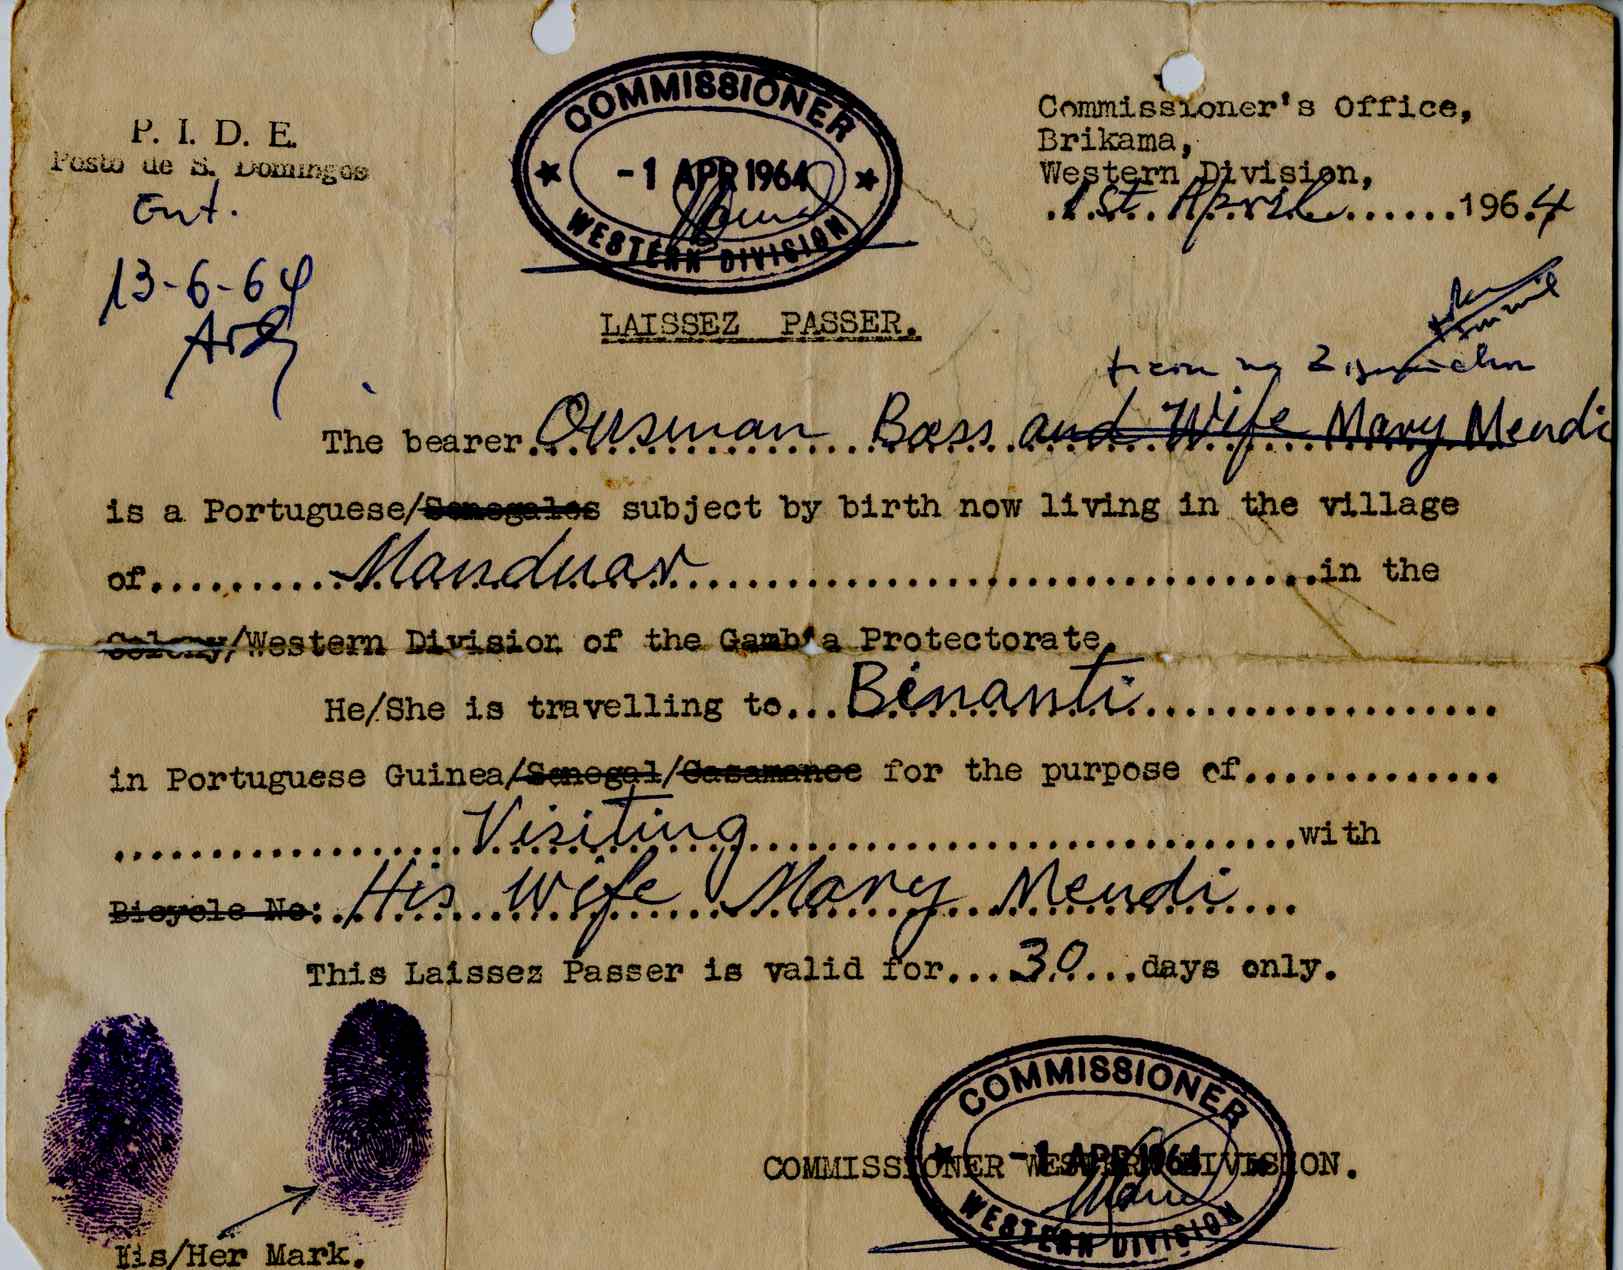 P. I. D. E.
Posto de S. Domingos
Ent.
13-6-64
COMMISSIONER
-1 APR 1964
WESTERN DIVISION
Commissioner's Office,
Brikama,
Western Division,
1st April 1964
LAISSEZ PASSER.
The bearer Ousman Bass and Wife Mary Mendi
is a Portuguese/Senegales subject by birth now living in the village
of Manduar in the
Colony/Western Division of the Gambia Protectorate.
He/She is travelling to Binanti
in Portuguese Guinea/Senegal/Casamance for the purpose of
Visiting with
Bicycle No: His Wife Mary Mendi
This Laissez Passer is valid for 30 days only.
COMMISSIONER
-1 APR 1964
COMMISSIONER WESTERN DIVISION.
WESTERN DIVISION
His/Her Mark.